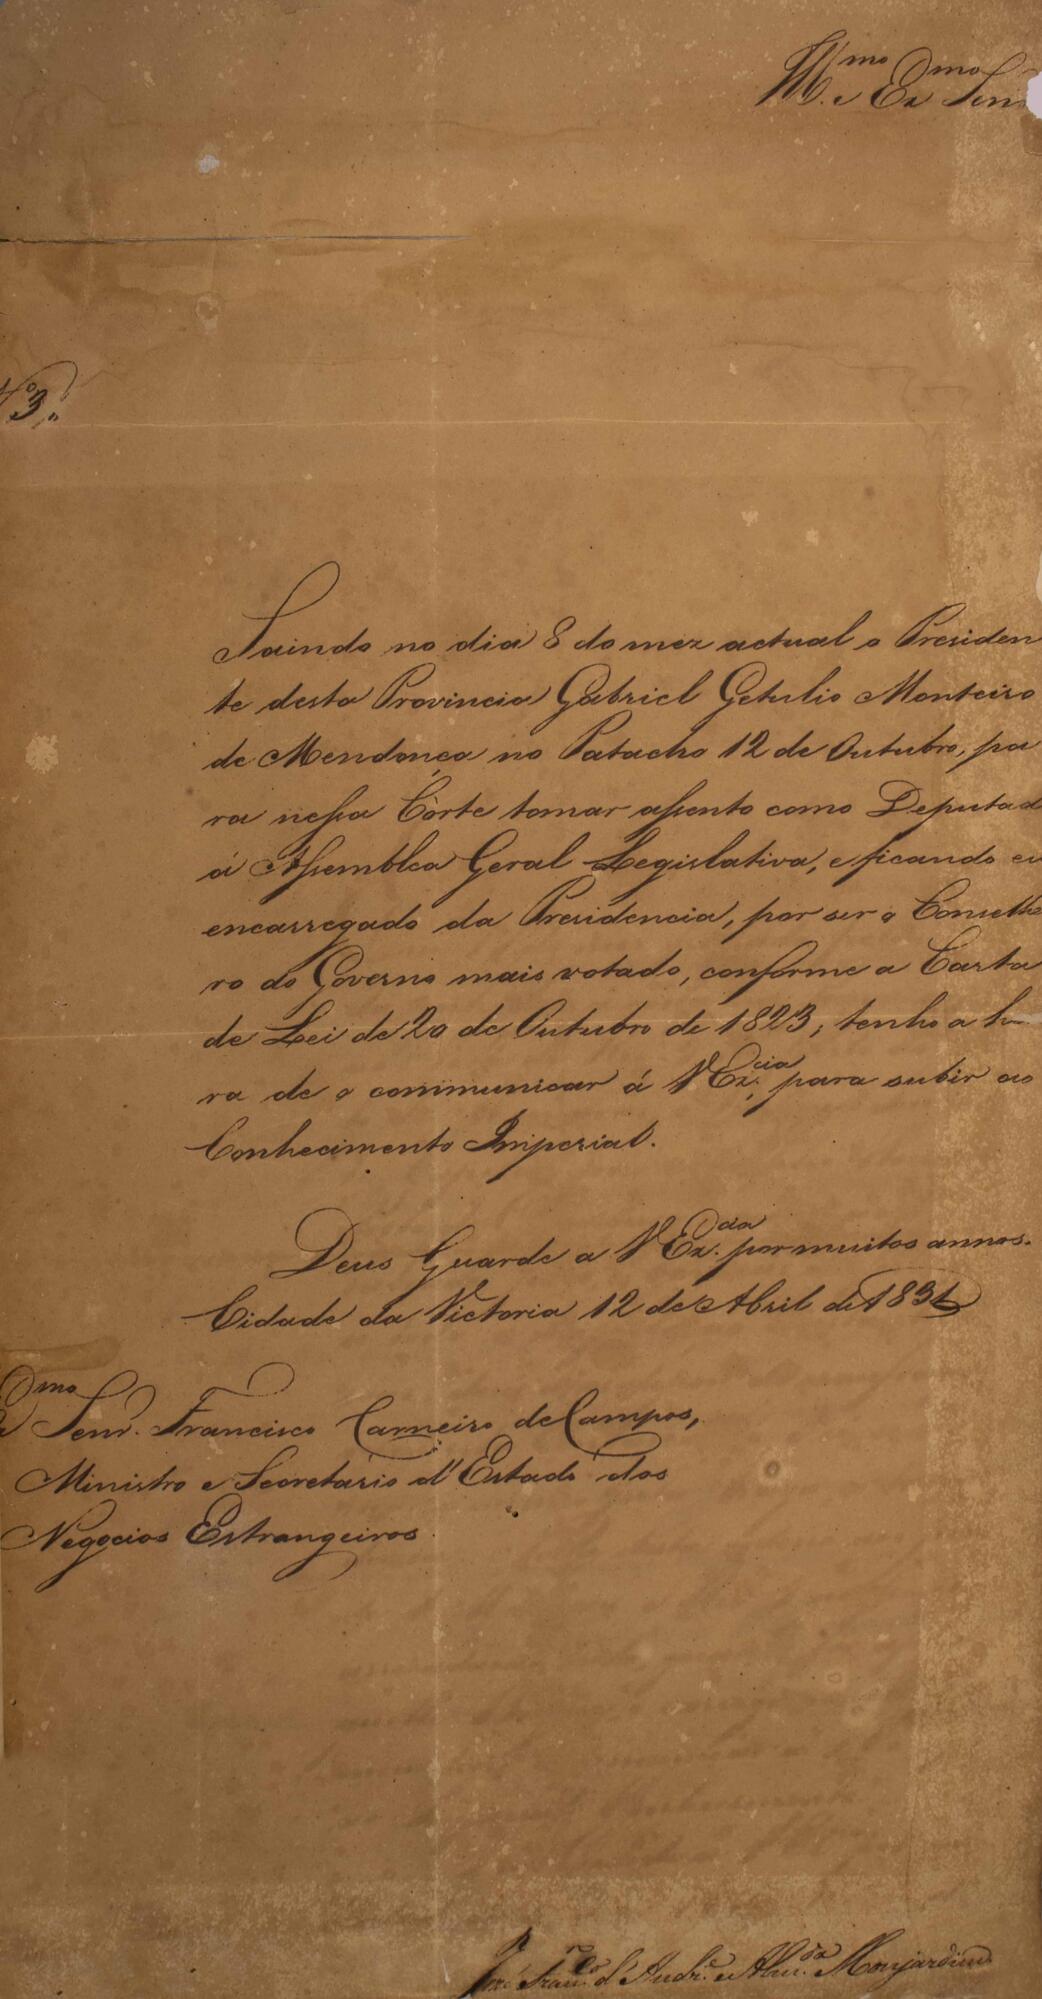 Ill.mo e Ex.mo Senr.
Nº 3."
Saindo no dia 8 do mez actual o Presiden
te desta Provincia Gabriel Getulio Monteiro
de Mendonça no Patacho 12 de Outubro, pa
ra nessa Côrte tomar assento como Deputad
á Assemblea Geral Legislativa, e ficando eu
encarregado da Presidencia, por ser o Conselhe
ro do Governo mais votado, conforme a Carta
de Lei de 20 de Outubro de 1823, tenho a hon
ra de o communicar á V Ex.cia, para subir ao
Conhecimento Imperial.
Deus Guarde a V Ex.cia por muitos annos.
Cidade da Victoria 12 de Abril de 1831
mo Senr. Francisco Carneiro de Campos,
Ministro e Secretario d'Estado dos
Negocios Estrangeiros.
José Fran.co d'Andr.e e Alm.da Monjardim